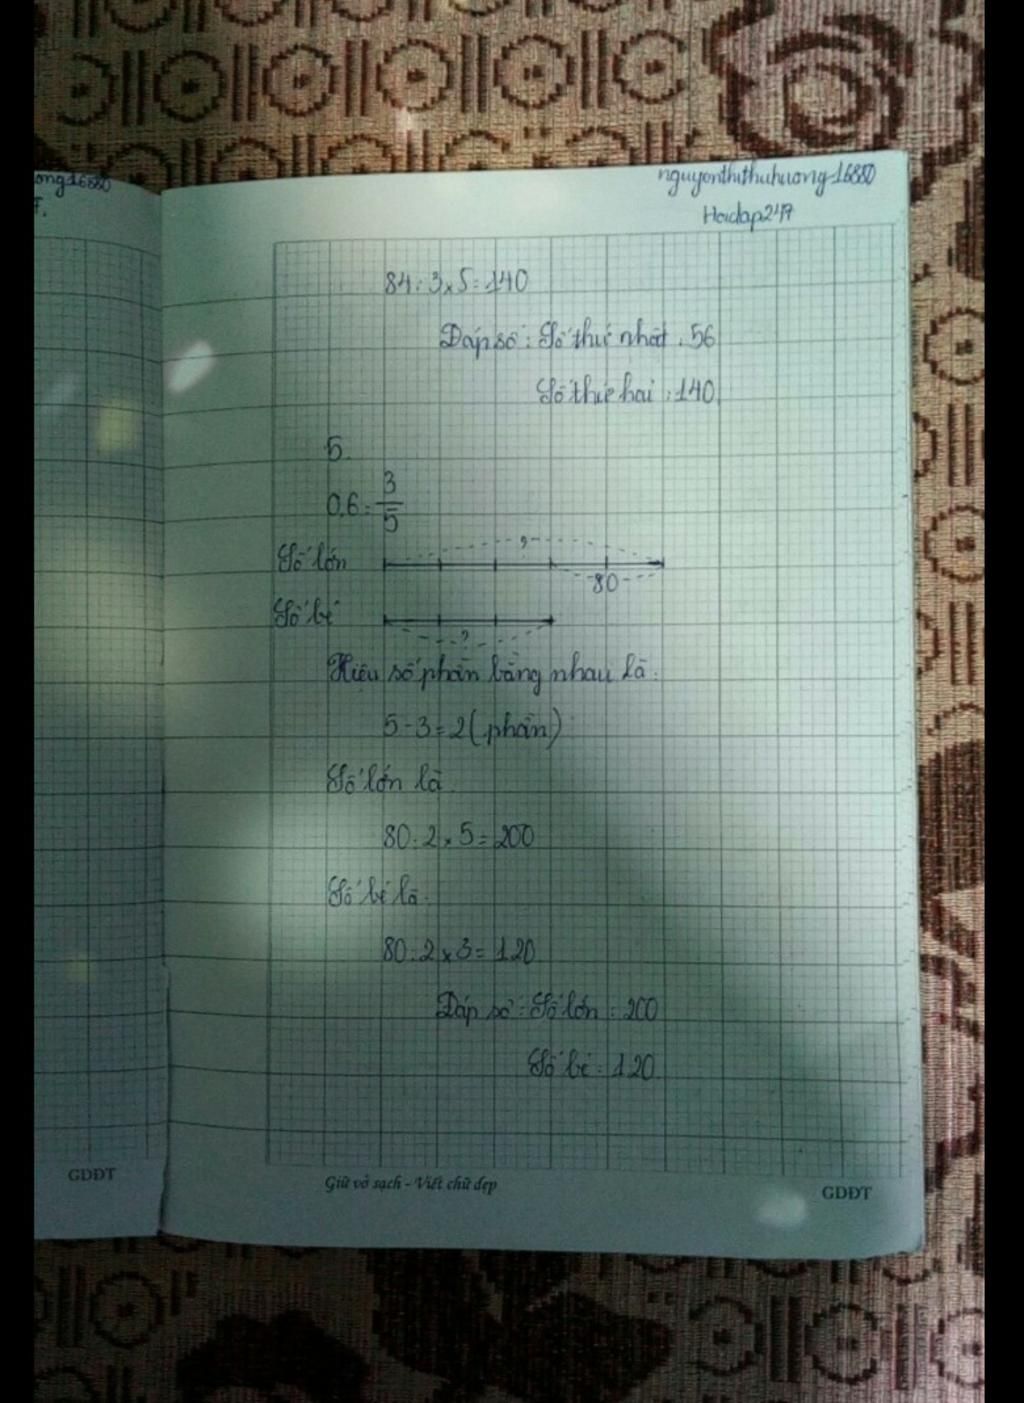 ong16880
nguyenthithuhuong16880
Hoidap247
84:3x5=140
Đáp số: Số thứ nhất: 56
Số thứ hai: 140
5.
0,6=3/5
Số lớn
?
80
Số bé
?
Hiệu số phần bằng nhau là:
5-3=2(phần)
Số lớn là:
80:2x5=200
Số bé là:
80:2x3=120
Đáp số: Số lớn: 200
Số bé: 120
GDĐT
Giữ vở sạch - Viết chữ đẹp
GDĐT